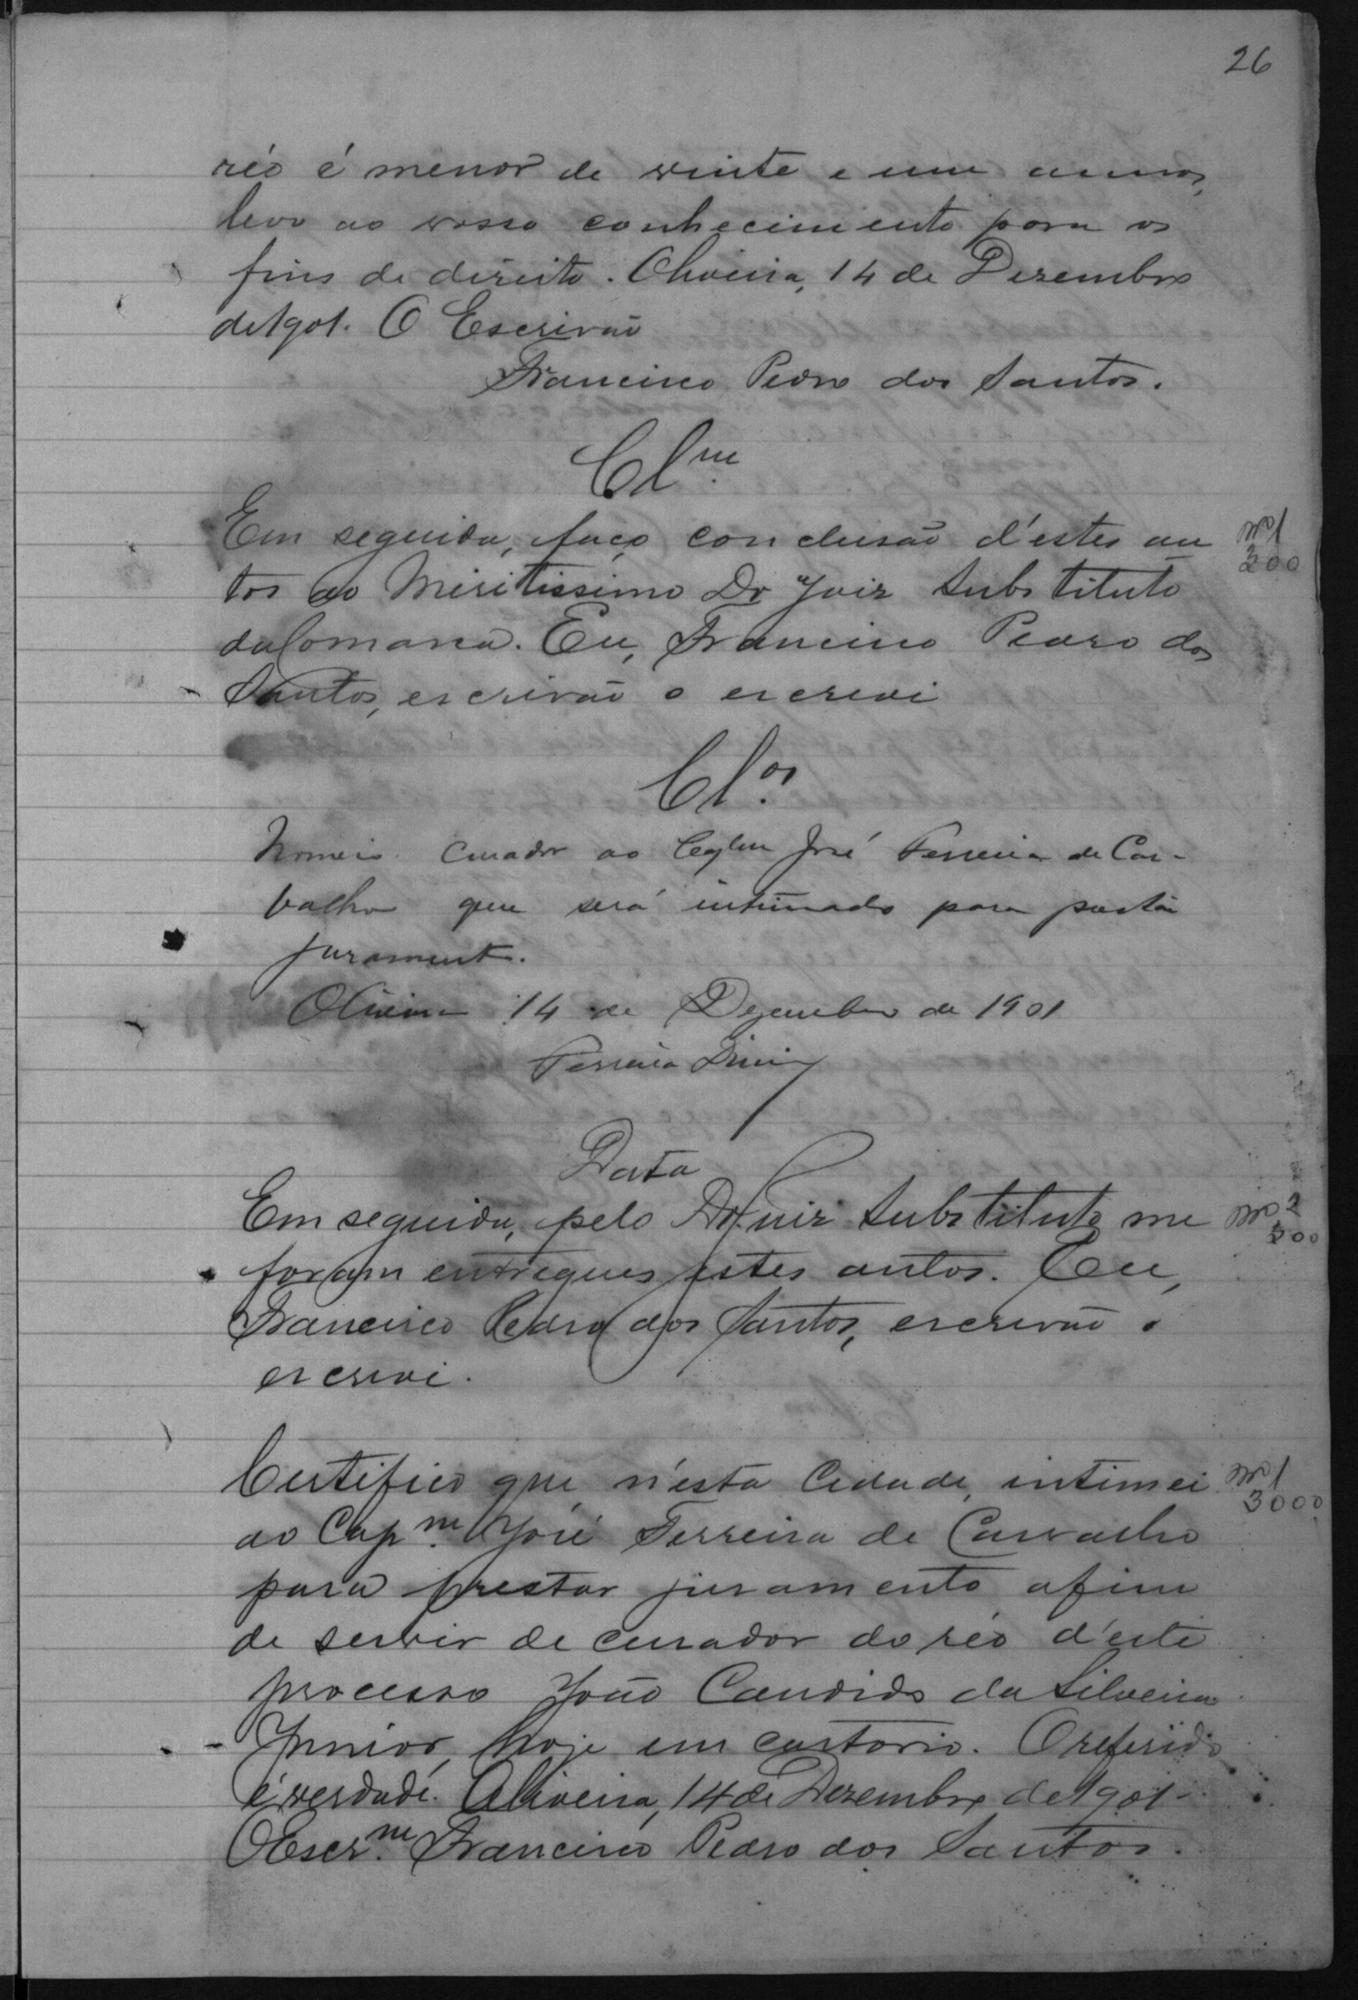 26
réo é menor de vinte e um annos,
levo ao vosso conhecimento para os
fins de direito. Oliveira, 14 de Dezembro
de 1901. O Escrivão
Francisco Pedro dos Santos.
Cl.m
Em seguida, faço conclusão d'estes au
tos ao Meritissimo Dr Juiz Substituto
da Comarca. Eu, Francisco Pedro dos
Santos, escrivão o escrevi
nº 1
300
Cl.os
Nomeio curador ao José Ferreira de Car-
valho que será intimado para prestar
juramento.
Oliveira 14 de Dezembro de 1901
Ferreira
Data
Em seguida, pelo Dr Juiz Substituto me
foram entregues estes autos. Eu,
Francisco Pedro dos Santos, escrivão o
escrevi.
nº 2
300
Certifico que n'esta Cidade, intimei
ao Cap.m José Ferreira de Carvalho
para prestar juramento afim
de servir de curador do réo d'este
processo João Candido da Silveira
Junior, hoje em cartorio. O referido
é verdade. Oliveira, 14 de Dezembro de 1901.
O Escr.m Francisco Pedro dos Santos.
nº 1
3000